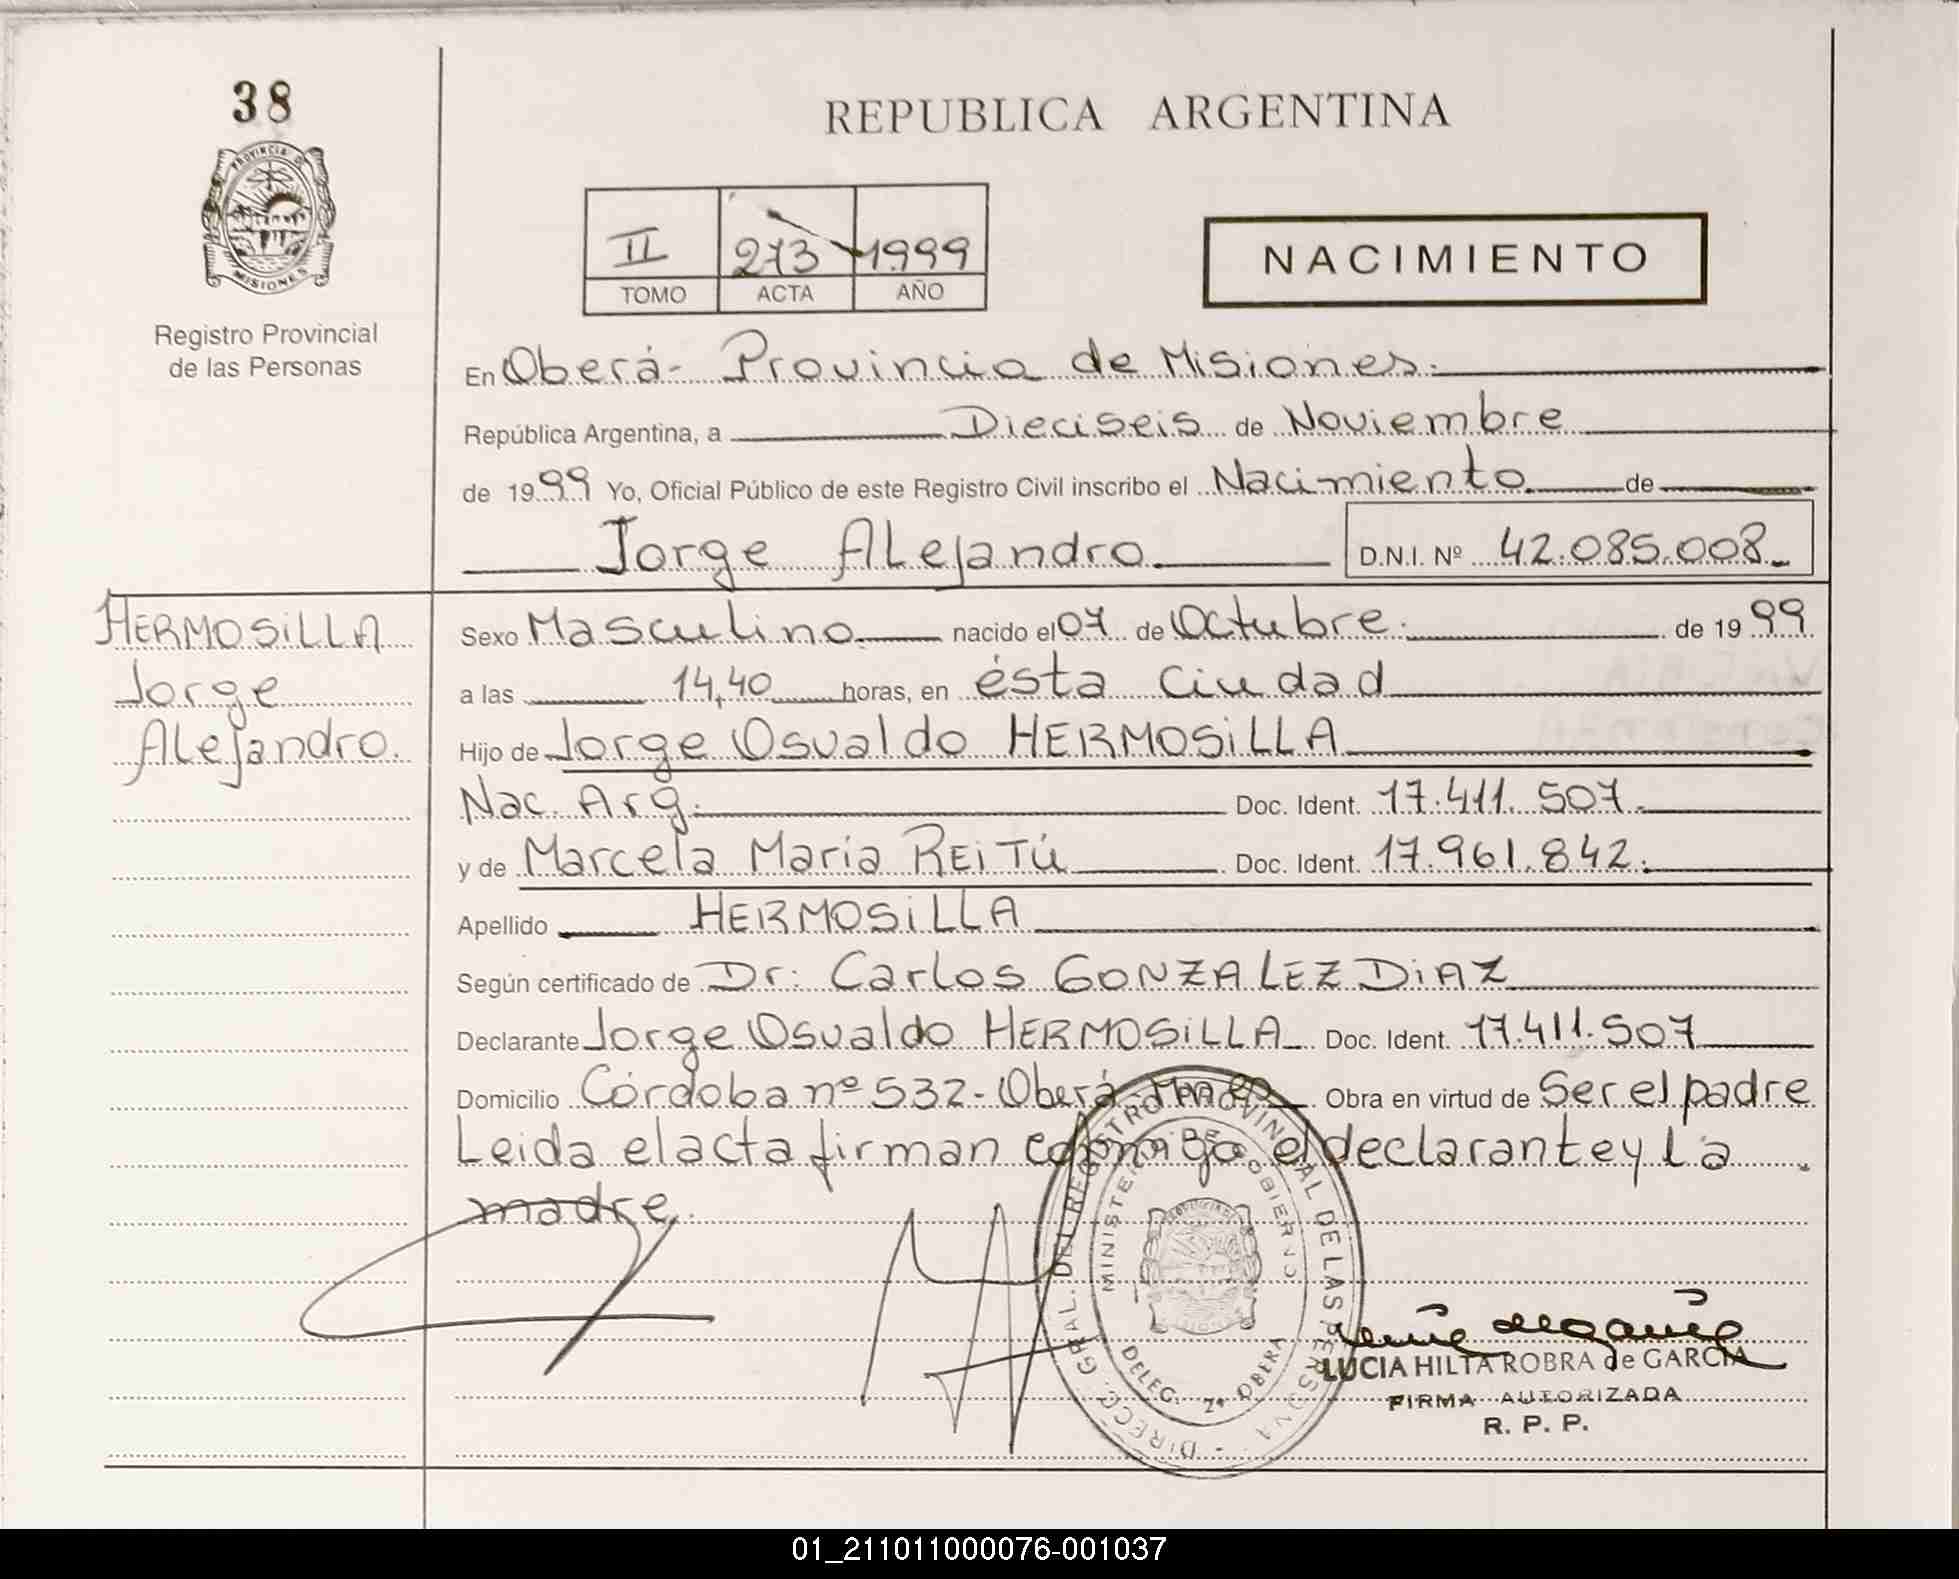 38
PROVINCIA DE
MISIONES
Registro Provincial
de las Personas
REPUBLICA ARGENTINA
II 273 1999
TOMO ACTA AÑO
NACIMIENTO
En Oberá- Provincia de Misiones.
República Argentina, a Dieciseis de Noviembre
de 1999 Yo, Oficial Público de este Registro Civil inscribo el Nacimiento de
Jorge Alejandro D.N.I. Nº 42.085.008
HERMOSILLA
Jorge
Alejandro.
Sexo Masculino nacido el 07 de Octubre. de 1999
a las 14,40 horas, en ésta Ciudad
Hijo de Jorge Osvaldo HERMOSILLA
Nac. Arg. Doc. Ident. 17.411.507.
y de Marcela Maria REITÚ Doc. Ident. 17.961.842.
Apellido HERMOSILLA
Según certificado de Dr: Carlos GONZALEZ DIAZ
Declarante Jorge Osvaldo HERMOSILLA Doc. Ident. 17.411.507
Domicilio Córdoba nº 532- Oberá Obra en virtud de Ser el padre
Leida el acta firman conmigo el declarante y la
madre.
DIRECC. GRAL. DEL REGISTRO PROVINCIAL DE LAS PERSONAS
MINISTERIO DE GOBIERNO
DELEG. 2ª OBERA
LUCIA HILTA ROBRA de GARCIA
FIRMA AUTORIZADA
R. P. P.
01_211011000076-001037